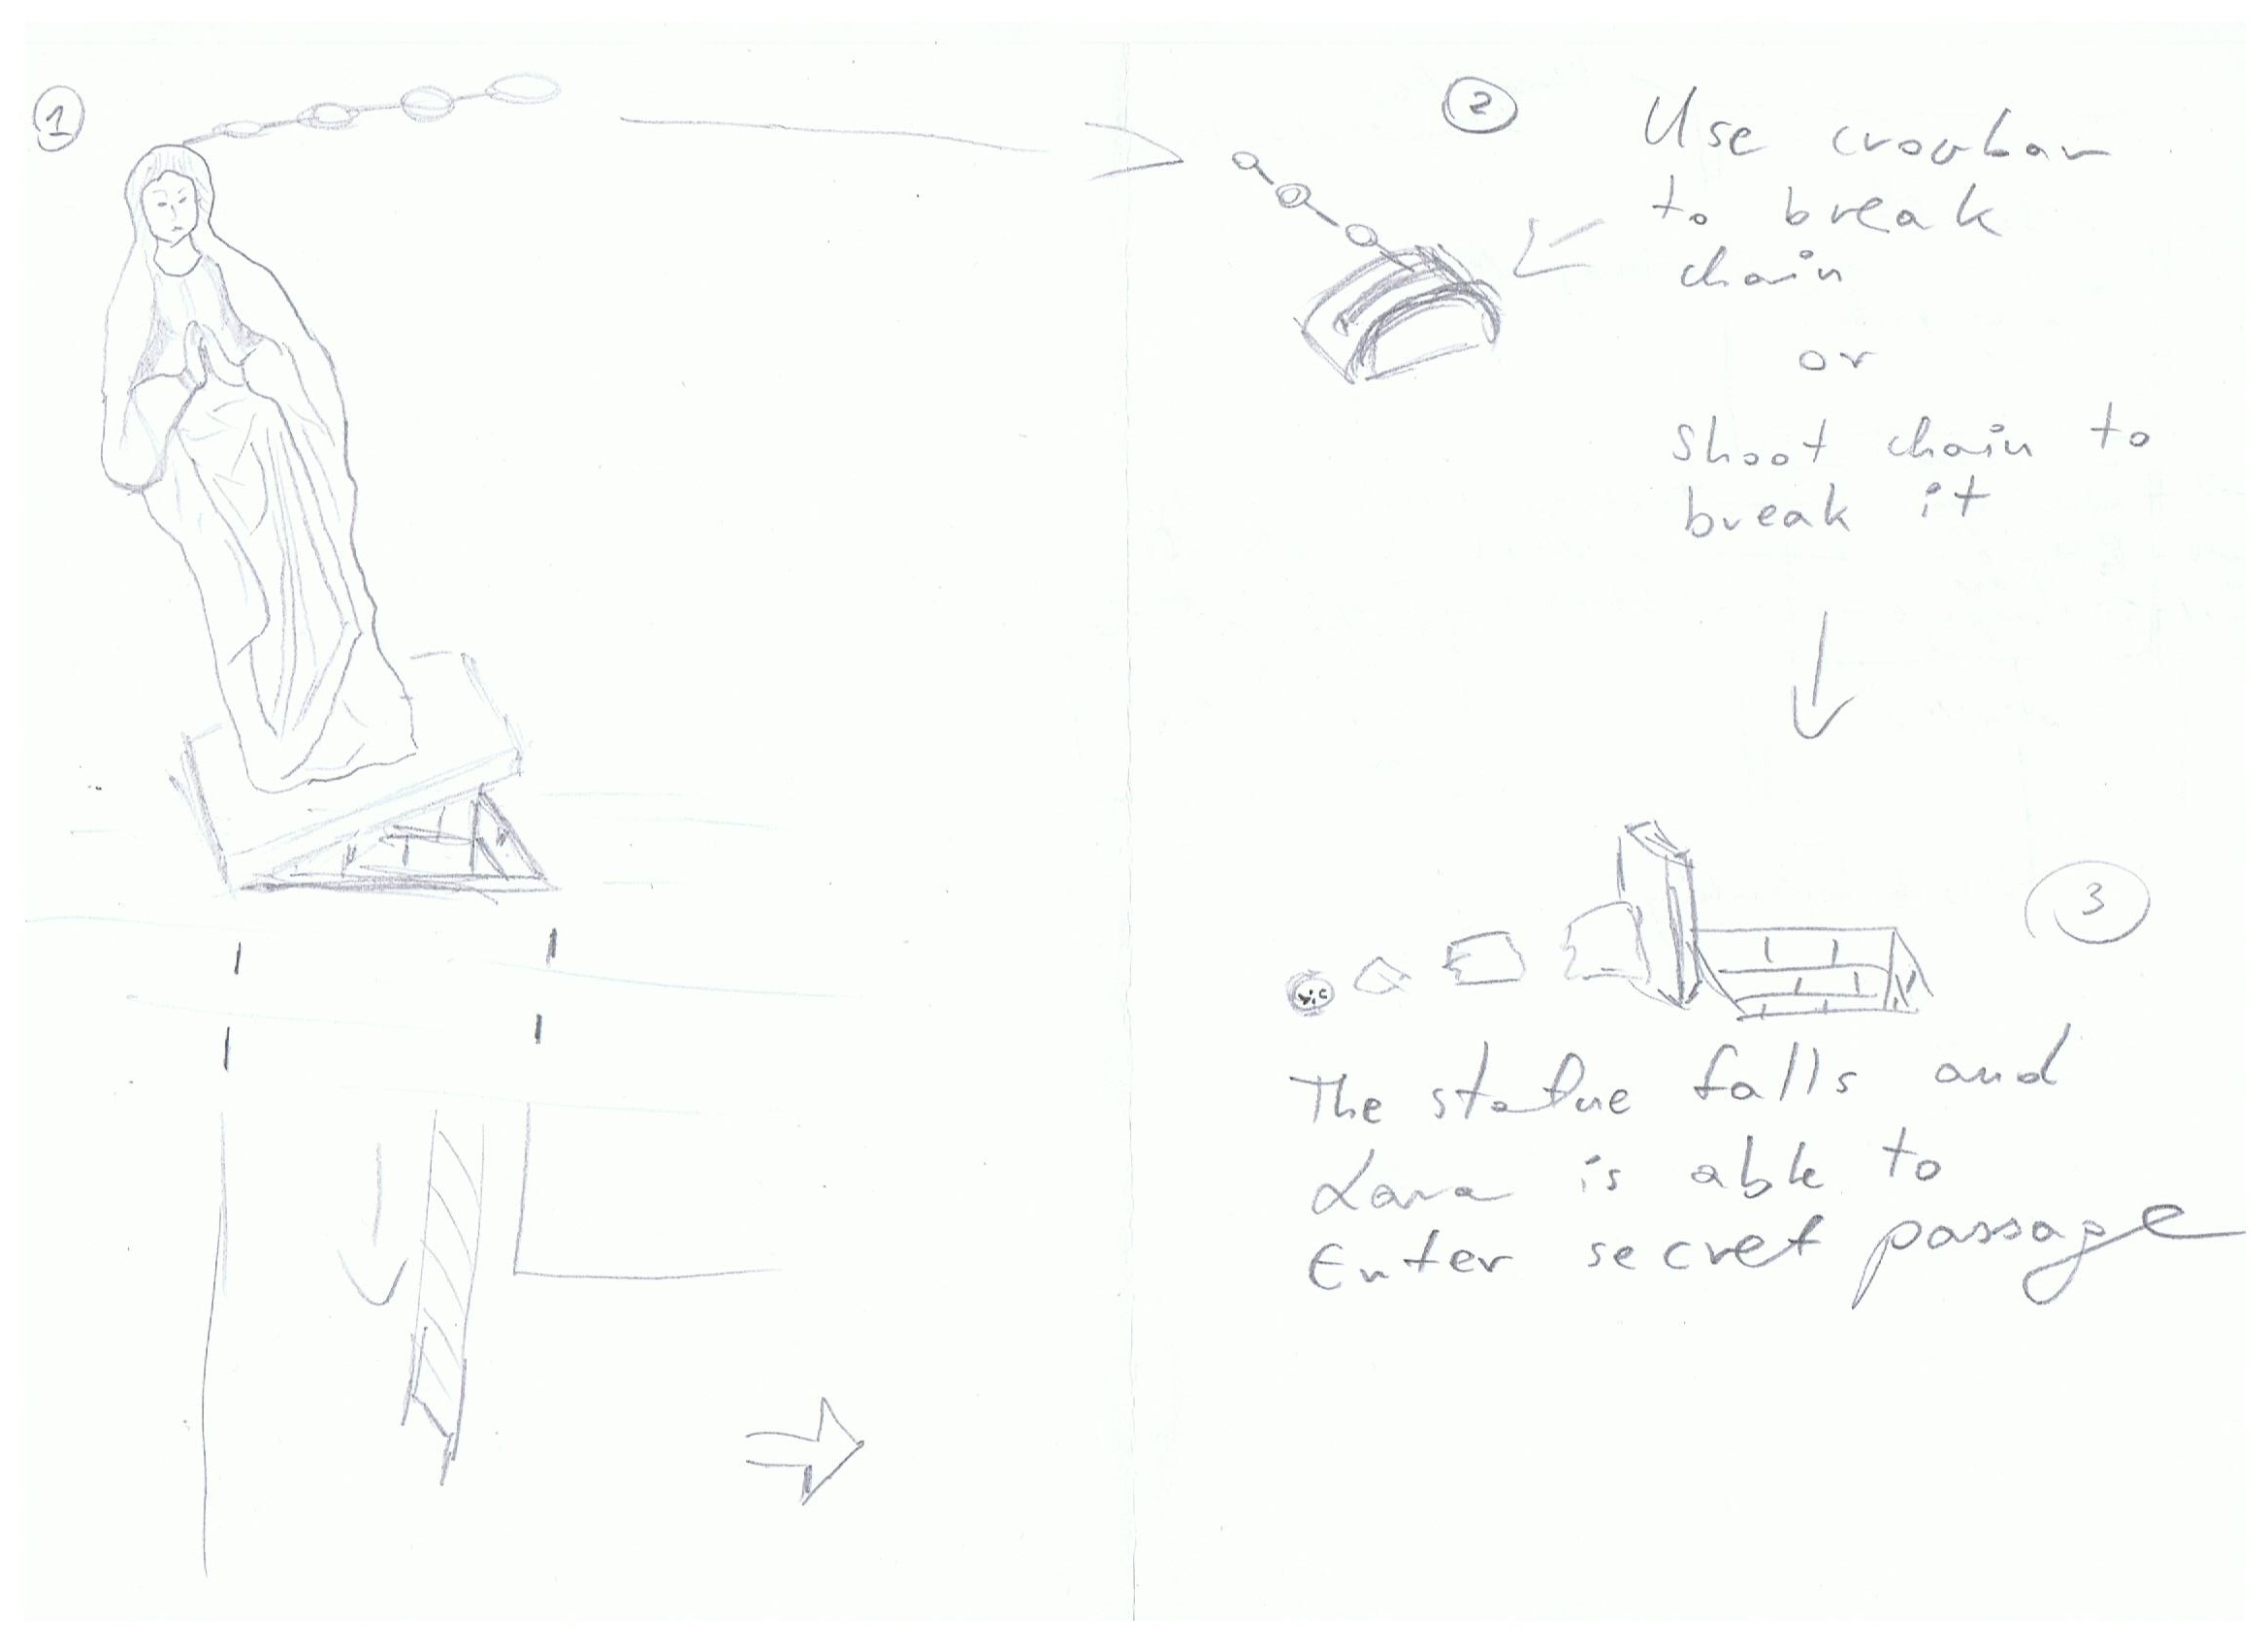 1
2
Use crowbar
to break
chain
or
Shoot chain to
break it
3
The statue falls and
Lara is able to
Enter secret passage